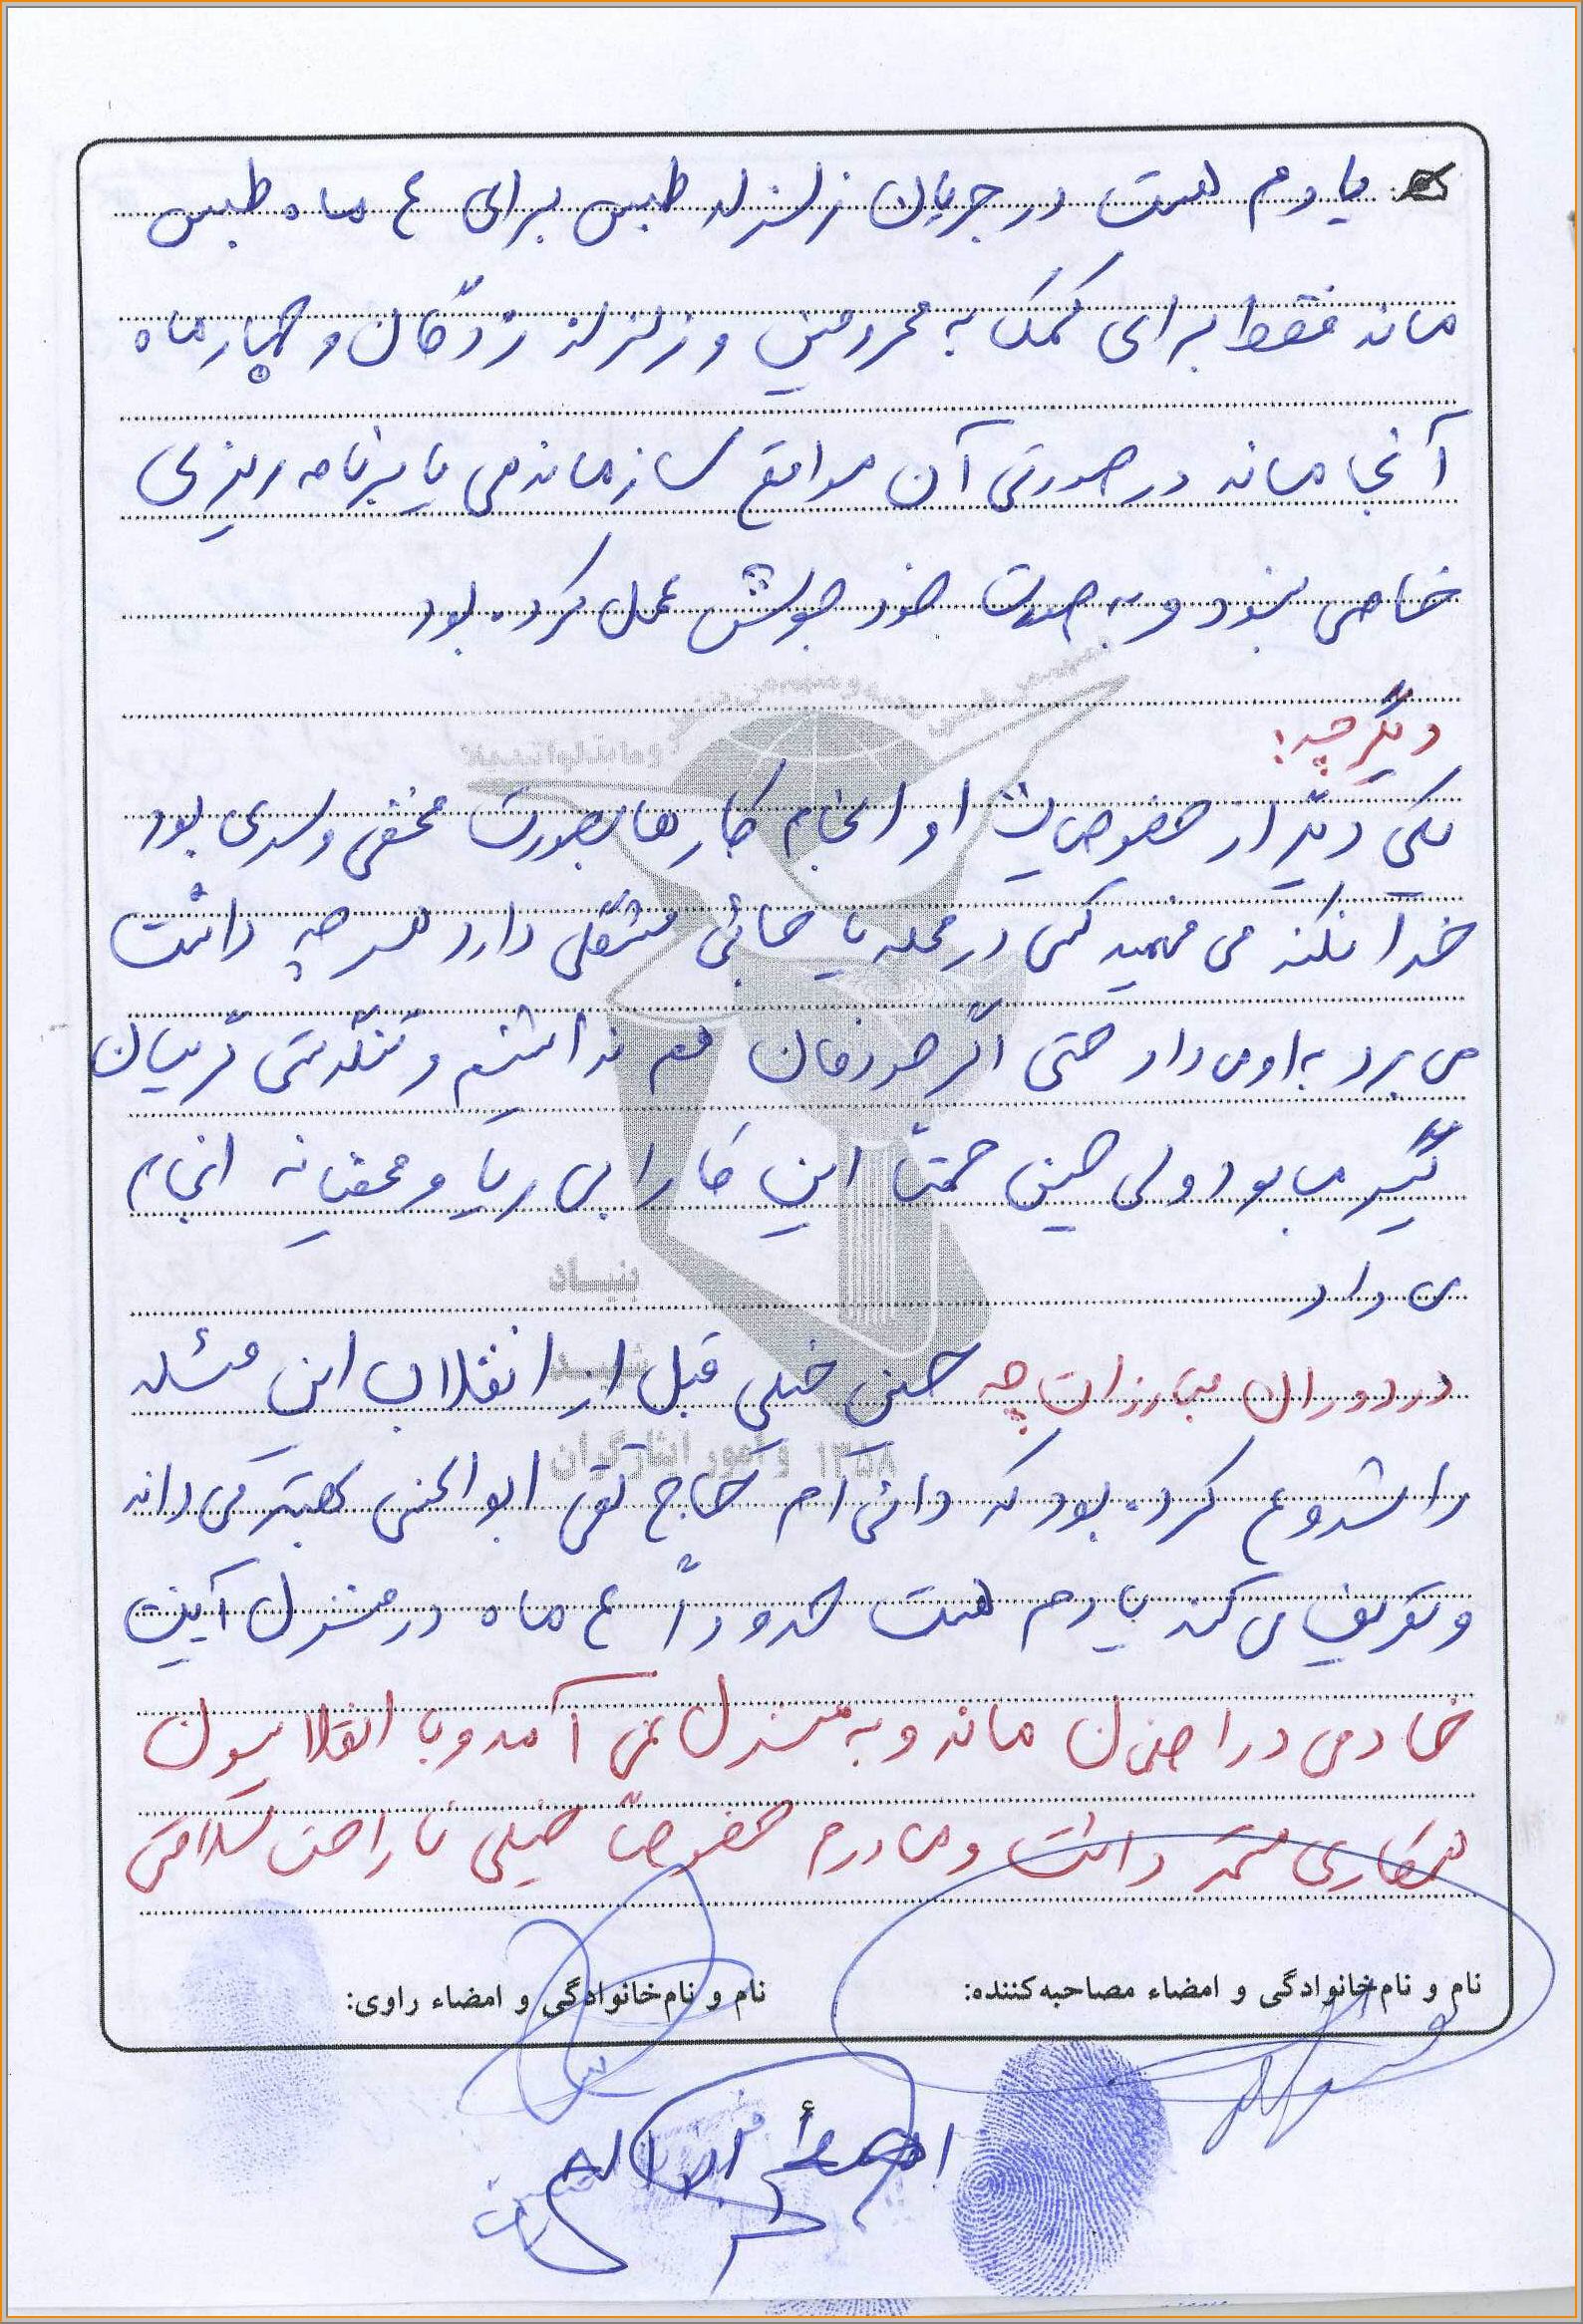 یادم هست در جریان زلزله طبس برای ۴ ماه طبس
ماند فقط برای کمک به محرومین و زلزله زدگان و چهار ماه
آنجا ماند در صورتی آن مواقع سازماندهی یا برنامه ریزی
خاصی نبود و به صورت خود جوش عمل کرده بود
دیگر چه:
یکی دیگر از خصوصیات او انجام کارها بصورت مخفی و سری بود
خدا نکند می فهمید کسی در محله یا جائی مشکلی دارد هر چه داشت
می برد به او می داد حتی اگر خودمان هم نداشتیم و تنگدستی گریبان
گیر ما بود ولی حسین حتما این کار را بی ریا و مخفیانه انجام
می داد
در دوران مبارزات چه حسین خیلی قبل از انقلاب این مسئله
را شروع کرده بود که دائی ام حاج تقی ابوالحسنی بهتر می داند
و تعریف می کند یادم هست حدوداً ۴ ماه در منزل آیت
خادمی در اصفهان ماند و به منزل نمی آمد و با انقلابیون
همکاری مستمر داشت و مادرم خصوصاً خیلی ناراحت سلامتی
نام و نام‌خانوادگی و امضاء مصاحبه‌کننده:
نام و نام‌خانوادگی و امضاء راوی:
بنیاد
شهید
و امور ایثارگران
۱۳۵۸